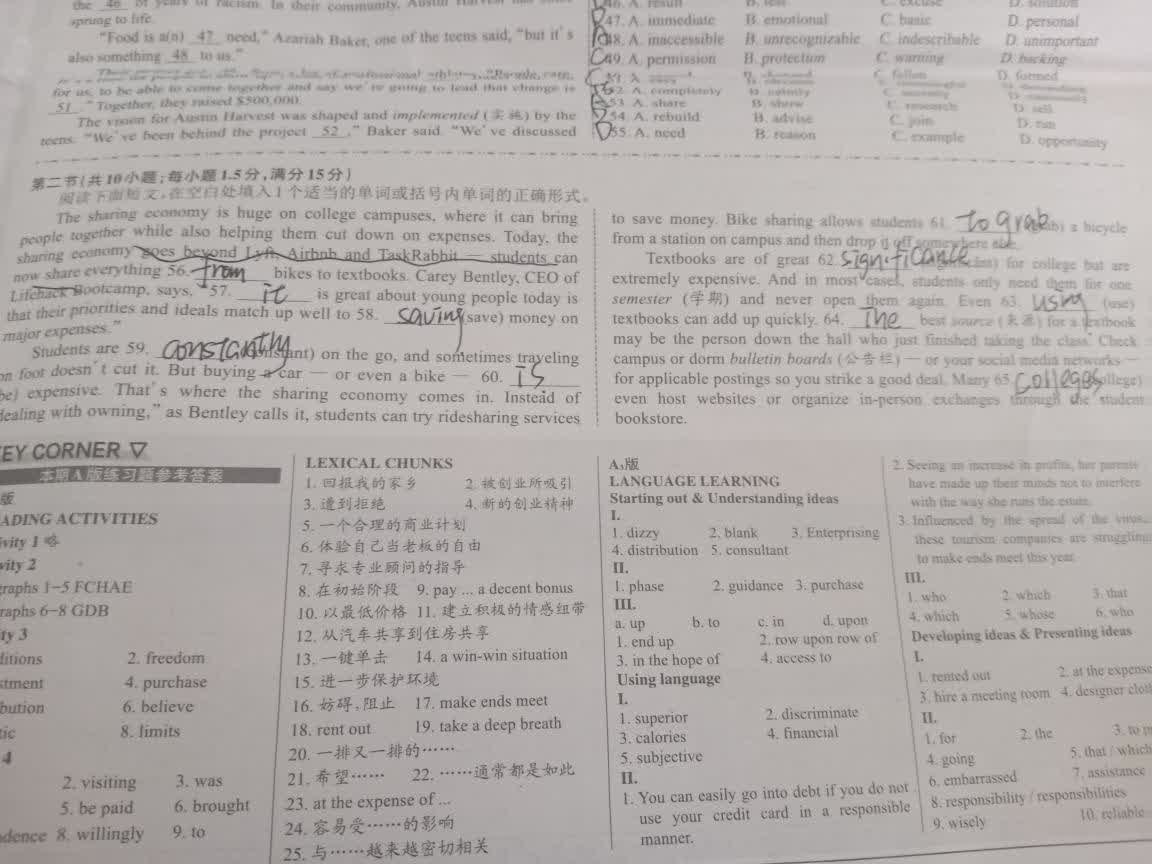 the 46 of years of racism. In their community, Austin Harvest has
sprung to life.
"Food is a(n) 47 need," Azariah Baker, one of the teens said, "but it's
also something 48 to us."
for us, to be able to come together and say we're going to lead that change is
51 ." Together, they raised $500,000.
The vision for Austin Harvest was shaped and implemented (实施) by the
teens. "We've been behind the project 52 ," Baker said. "We've discussed
46. A. result B. test C. excuse D. solution
D 47. A. immediate B. emotional C. basic D. personal
48. A. inaccessible B. unrecognizable C. indescribable D. unimportant
C 49. A. permission B. protection C. warning D. backing
C. fallen D. formed
52. A. completely
53. A. share B. show C. research D. sell
54. A. rebuild B. advise C. join D. run
D 55. A. need B. reason C. example D. opportunity
第二节(共10小题;每小题1.5分,满分15分)
阅读下面短文,在空白处填入1个适当的单词或括号内单词的正确形式。
The sharing economy is huge on college campuses, where it can bring
people together while also helping them cut down on expenses. Today, the
sharing economy goes beyond Lyft, Airbnb and TaskRabbit — students can
now share everything 56. from bikes to textbooks. Carey Bentley, CEO of
Lifehack Bootcamp, says, "57. it is great about young people today is
that their priorities and ideals match up well to 58. saving (save) money on
major expenses."
Students are 59. constantly (constant) on the go, and sometimes traveling
on foot doesn't cut it. But buying a car — or even a bike — 60. is
(be) expensive. That's where the sharing economy comes in. Instead of
dealing with owning," as Bentley calls it, students can try ridesharing services
to save money. Bike sharing allows students 61. to grab a bicycle
from a station on campus and then drop it off somewhere else.
Textbooks are of great 62. significance for college but are
extremely expensive. And in most cases, students only need them for one
semester (学期) and never open them again. Even 63. using (use)
textbooks can add up quickly. 64. The best source (来源) for a textbook
may be the person down the hall who just finished taking the class. Check
campus or dorm bulletin boards (公告栏) — or your social media networks —
for applicable postings so you strike a good deal. Many 65. colleges (college)
even host websites or organize in-person exchanges through the student
bookstore.
EY CORNER ▽
本期A版练习题参考答案
版
ADING ACTIVITIES
ivity 1 略
vity 2
graphs 1-5 FCHAE
raphs 6-8 GDB
ity 3
ditions 2. freedom
stment 4. purchase
bution 6. believe
tic 8. limits
4
2. visiting 3. was
5. be paid 6. brought
dence 8. willingly 9. to
LEXICAL CHUNKS
1. 回报我的家乡 2. 被创业所吸引
3. 遭到拒绝 4. 新的创业精神
5. 一个合理的商业计划
6. 体验自己当老板的自由
7. 寻求专业顾问的指导
8. 在初始阶段 9. pay ... a decent bonus
10. 以最低价格 11. 建立积极的情感纽带
12. 从汽车共享到住房共享
13. 一键单击 14. a win-win situation
15. 进一步保护环境
16. 妨碍,阻止 17. make ends meet
18. rent out 19. take a deep breath
20. 一排又一排的……
21. 希望…… 22. ……通常都是如此
23. at the expense of ...
24. 容易受……的影响
25. 与……越来越密切相关
A₃版
LANGUAGE LEARNING
Starting out & Understanding ideas
I.
1. dizzy 2. blank 3. Enterprising
4. distribution 5. consultant
II.
1. phase 2. guidance 3. purchase
III.
a. up b. to c. in d. upon
1. end up 2. row upon row of
3. in the hope of 4. access to
Using language
I.
1. superior 2. discriminate
3. calories 4. financial
5. subjective
II.
1. You can easily go into debt if you do not
use your credit card in a responsible
manner.
2. Seeing an increase in profits, her parents
have made up their minds not to interfere
with the way she runs the estate.
3. Influenced by the spread of the virus,
these tourism companies are struggling
to make ends meet this year.
III.
1. who 2. which 3. that
4. which 5. whose 6. who
Developing ideas & Presenting ideas
I.
1. rented out 2. at the expense
3. hire a meeting room 4. designer cloth
II.
1. for 2. the 3. to
4. going 5. that / which
6. embarrassed 7. assistance
8. responsibility / responsibilities
9. wisely 10. reliable